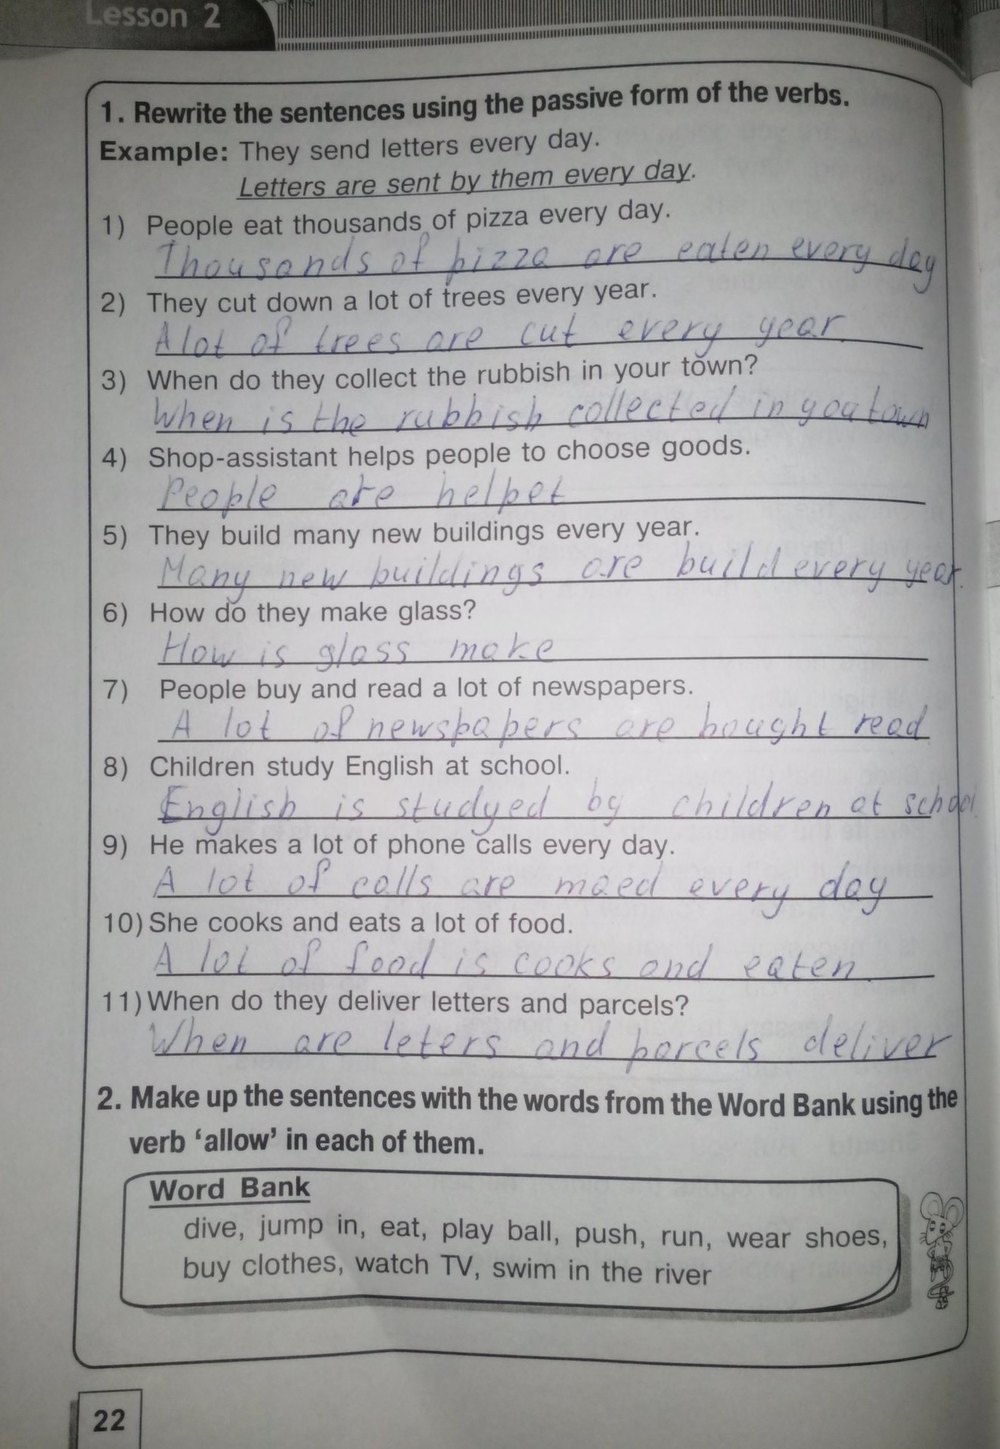 Lesson 2
1. Rewrite the sentences using the passive form of the verbs.
Example: They send letters every day.
Letters are sent by them every day.
1) People eat thousands of pizza every day.
Thousands of pizza are eaten every day
2) They cut down a lot of trees every year.
A lot of trees are cut every year.
3) When do they collect the rubbish in your town?
When is the rubbish collected in you town
4) Shop-assistant helps people to choose goods.
People are helpet
5) They build many new buildings every year.
Many new buildings are build every year.
6) How do they make glass?
How is glass make
7) People buy and read a lot of newspapers.
A lot of newspapers are bought read
8) Children study English at school.
English is studyed by children at school
9) He makes a lot of phone calls every day.
A lot of calls are maed every day
10) She cooks and eats a lot of food.
A lot of food is cooks and eaten.
11) When do they deliver letters and parcels?
When are leters and parcels deliver
2. Make up the sentences with the words from the Word Bank using the
verb ‘allow’ in each of them.
Word Bank
dive, jump in, eat, play ball, push, run, wear shoes,
buy clothes, watch TV, swim in the river
22